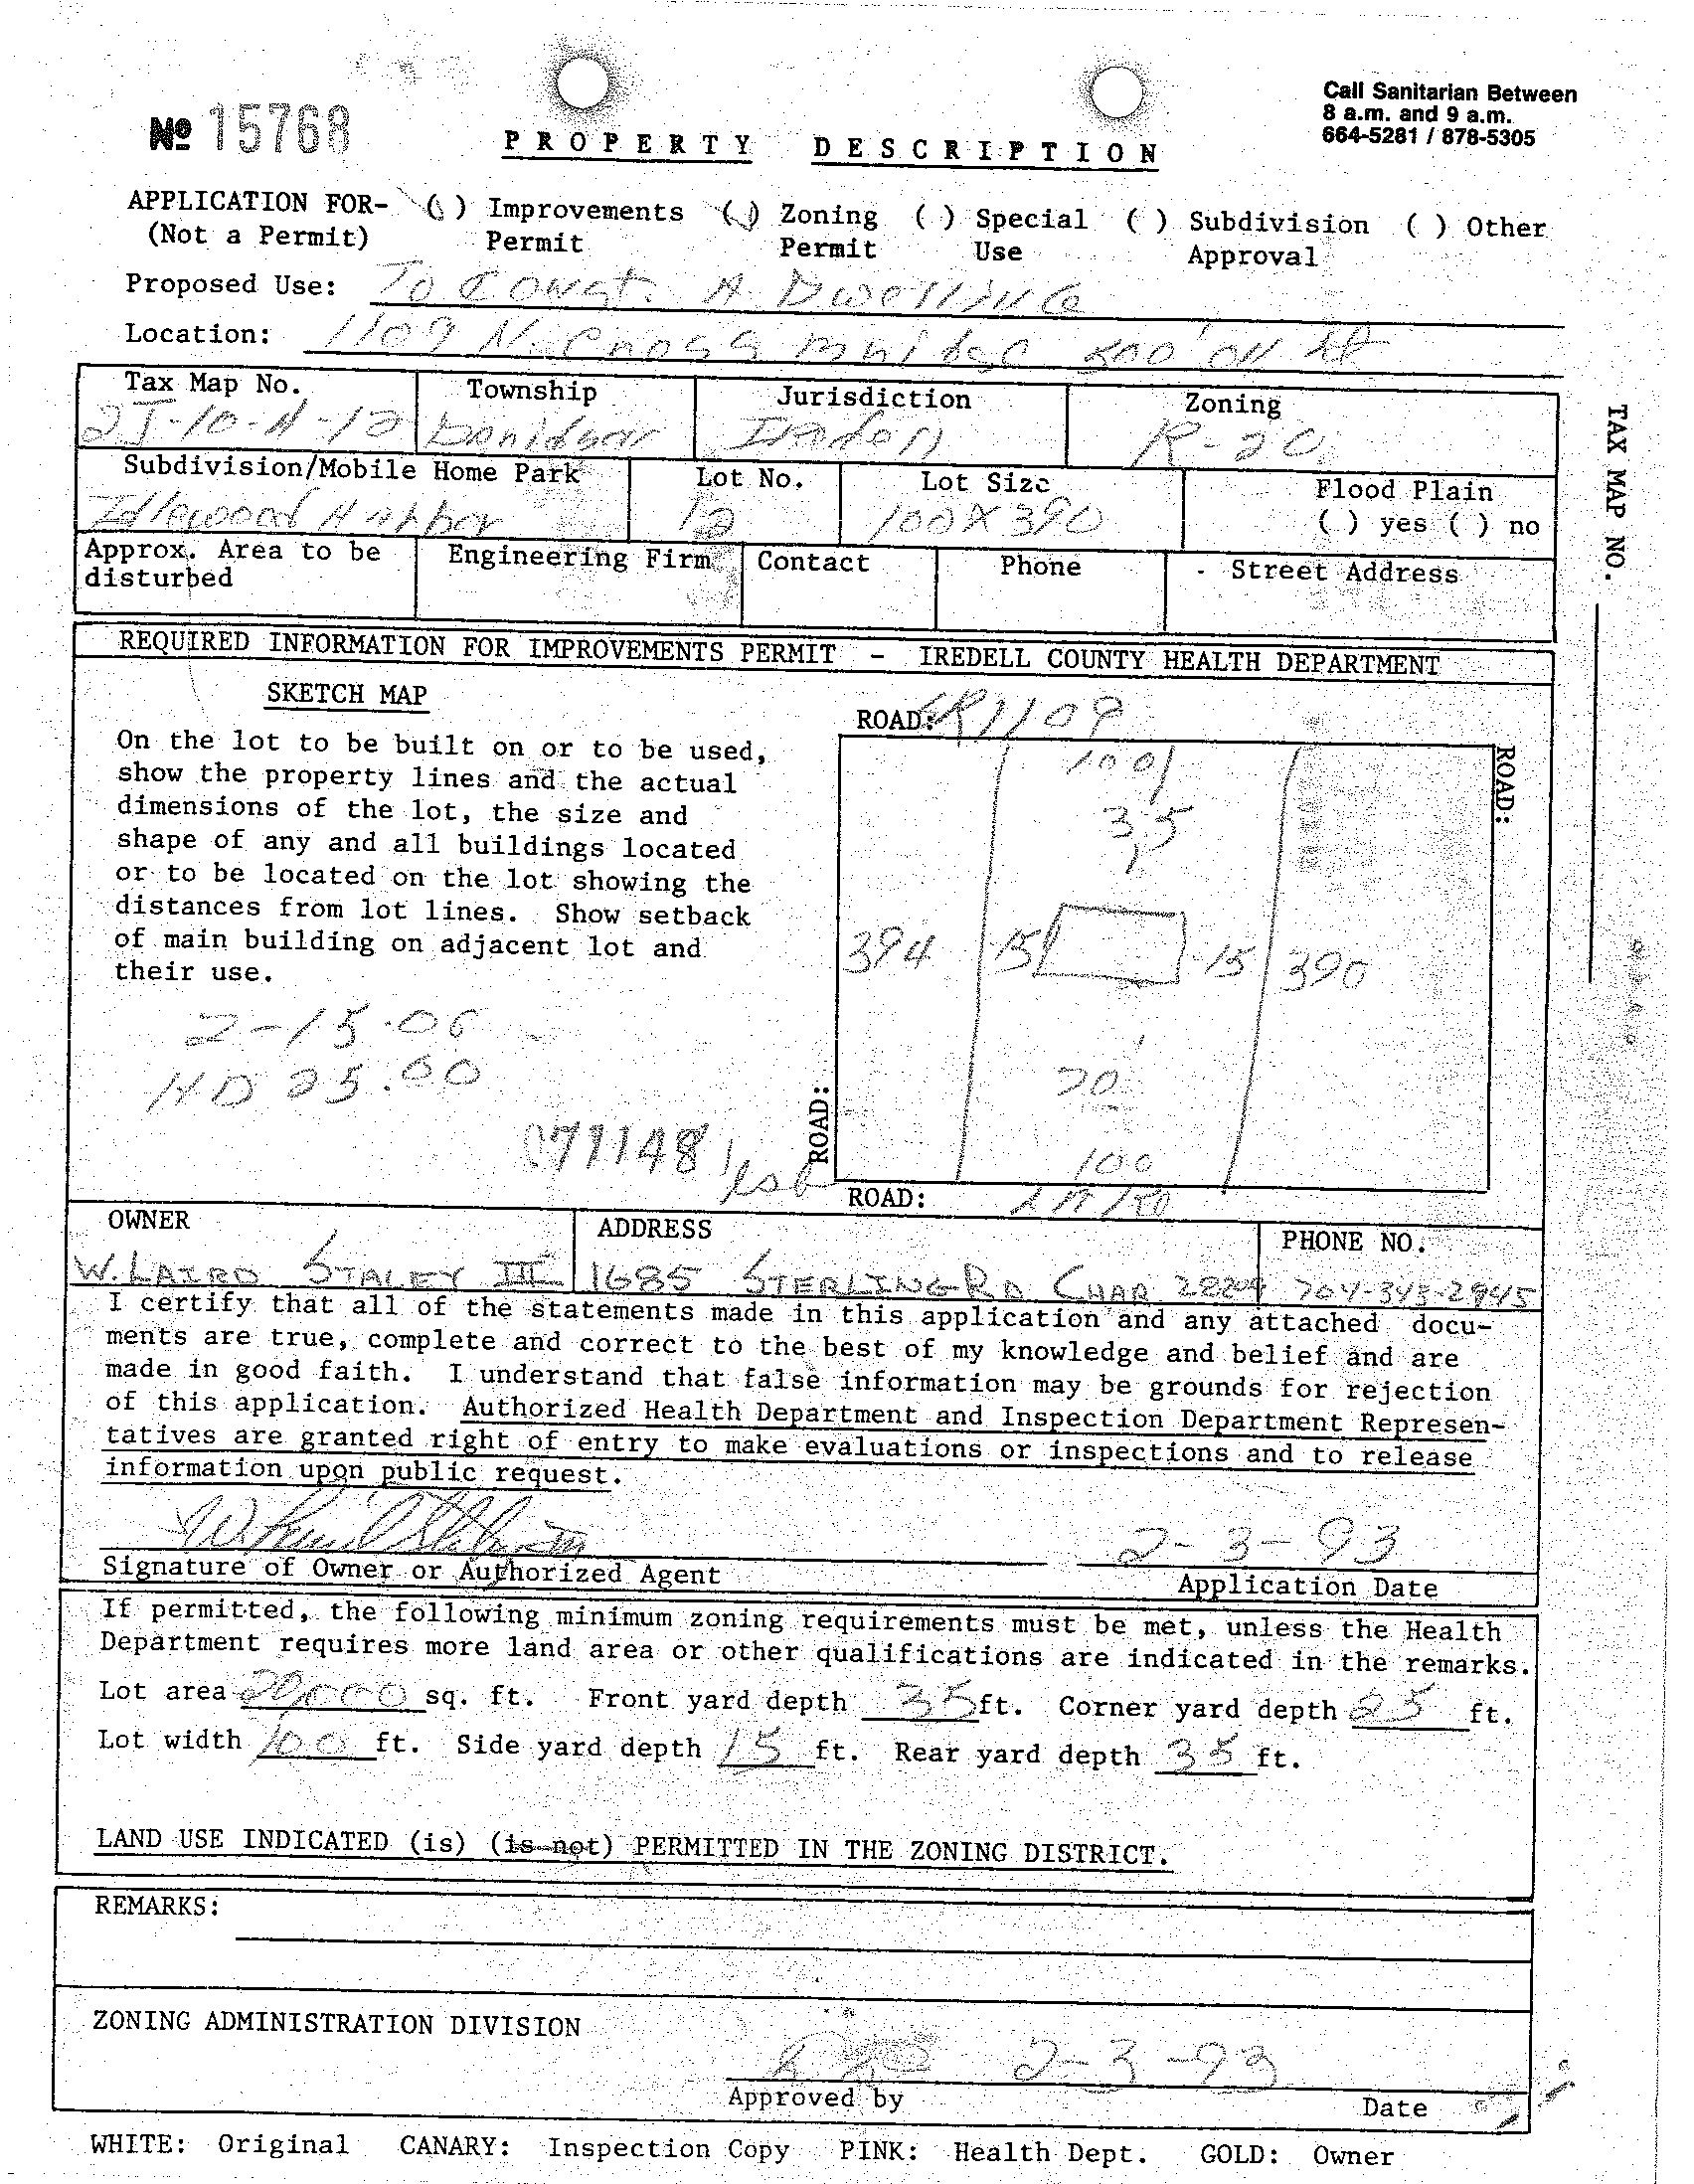 Call Sanitarian Between
8 a.m. and 9 a.m.
664-5281 / 878-5305
№ 15768
PROPERTY DESCRIPTION
APPLICATION FOR- ( ) Improvements ( ) Zoning ( ) Special ( ) Subdivision ( ) Other
(Not a Permit) Permit Permit Use Approval
Proposed Use: To Const. A Dwelling
Location: 1109 N. Cross Bridge 500' on Lt
Tax Map No. Township Jurisdiction Zoning
2J-10-A-12 Davidson Iredell R-20
Subdivision/Mobile Home Park Lot No. Lot Size Flood Plain
Idlewood Harbor 12 100 X 390 ( ) yes ( ) no
Approx. Area to be disturbed Engineering Firm Contact Phone Street Address
REQUIRED INFORMATION FOR IMPROVEMENTS PERMIT - IREDELL COUNTY HEALTH DEPARTMENT
SKETCH MAP
On the lot to be built on or to be used,
show the property lines and the actual
dimensions of the lot, the size and
shape of any and all buildings located
or to be located on the lot showing the
distances from lot lines. Show setback
of main building on adjacent lot and
their use.
Z-15.00
HD 25.00
071148
ROAD: SR1109
100
35
394 15 15 390
20
100
ROAD:
ROAD:
ROAD:
TAX MAP NO.
OWNER ADDRESS PHONE NO.
W. LAIRD STALEY III 1685 STERLING RD CHAR 28209 704-343-2945
I certify that all of the statements made in this application and any attached docu-
ments are true, complete and correct to the best of my knowledge and belief and are
made in good faith. I understand that false information may be grounds for rejection
of this application. Authorized Health Department and Inspection Department Represen-
tatives are granted right of entry to make evaluations or inspections and to release
information upon public request.
2-3-93
Signature of Owner or Authorized Agent Application Date
If permitted, the following minimum zoning requirements must be met, unless the Health
Department requires more land area or other qualifications are indicated in the remarks.
Lot area 20,000 sq. ft. Front yard depth 35 ft. Corner yard depth 25 ft.
Lot width 100 ft. Side yard depth 15 ft. Rear yard depth 35 ft.
LAND USE INDICATED (is) (is not) PERMITTED IN THE ZONING DISTRICT.
REMARKS:
ZONING ADMINISTRATION DIVISION
2-3-93
Approved by Date
WHITE: Original CANARY: Inspection Copy PINK: Health Dept. GOLD: Owner